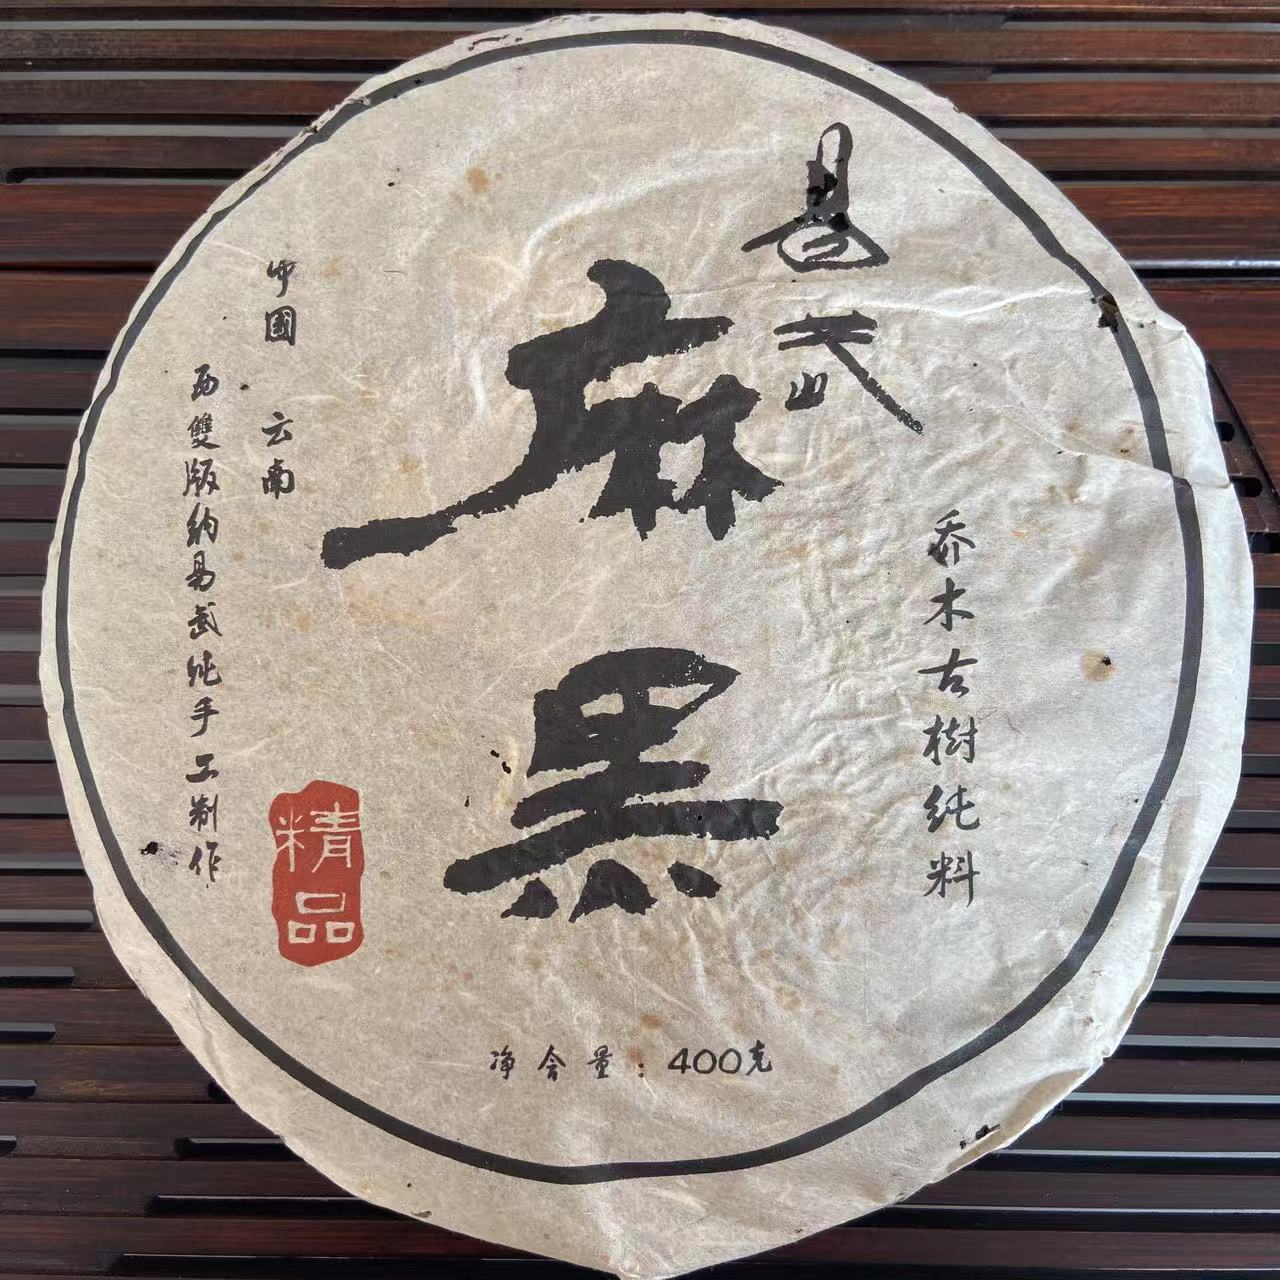 易武山
麻黑
乔木古樹纯料
中国 云南
西雙版纳易武纯手工制作
精品
净含量：400克